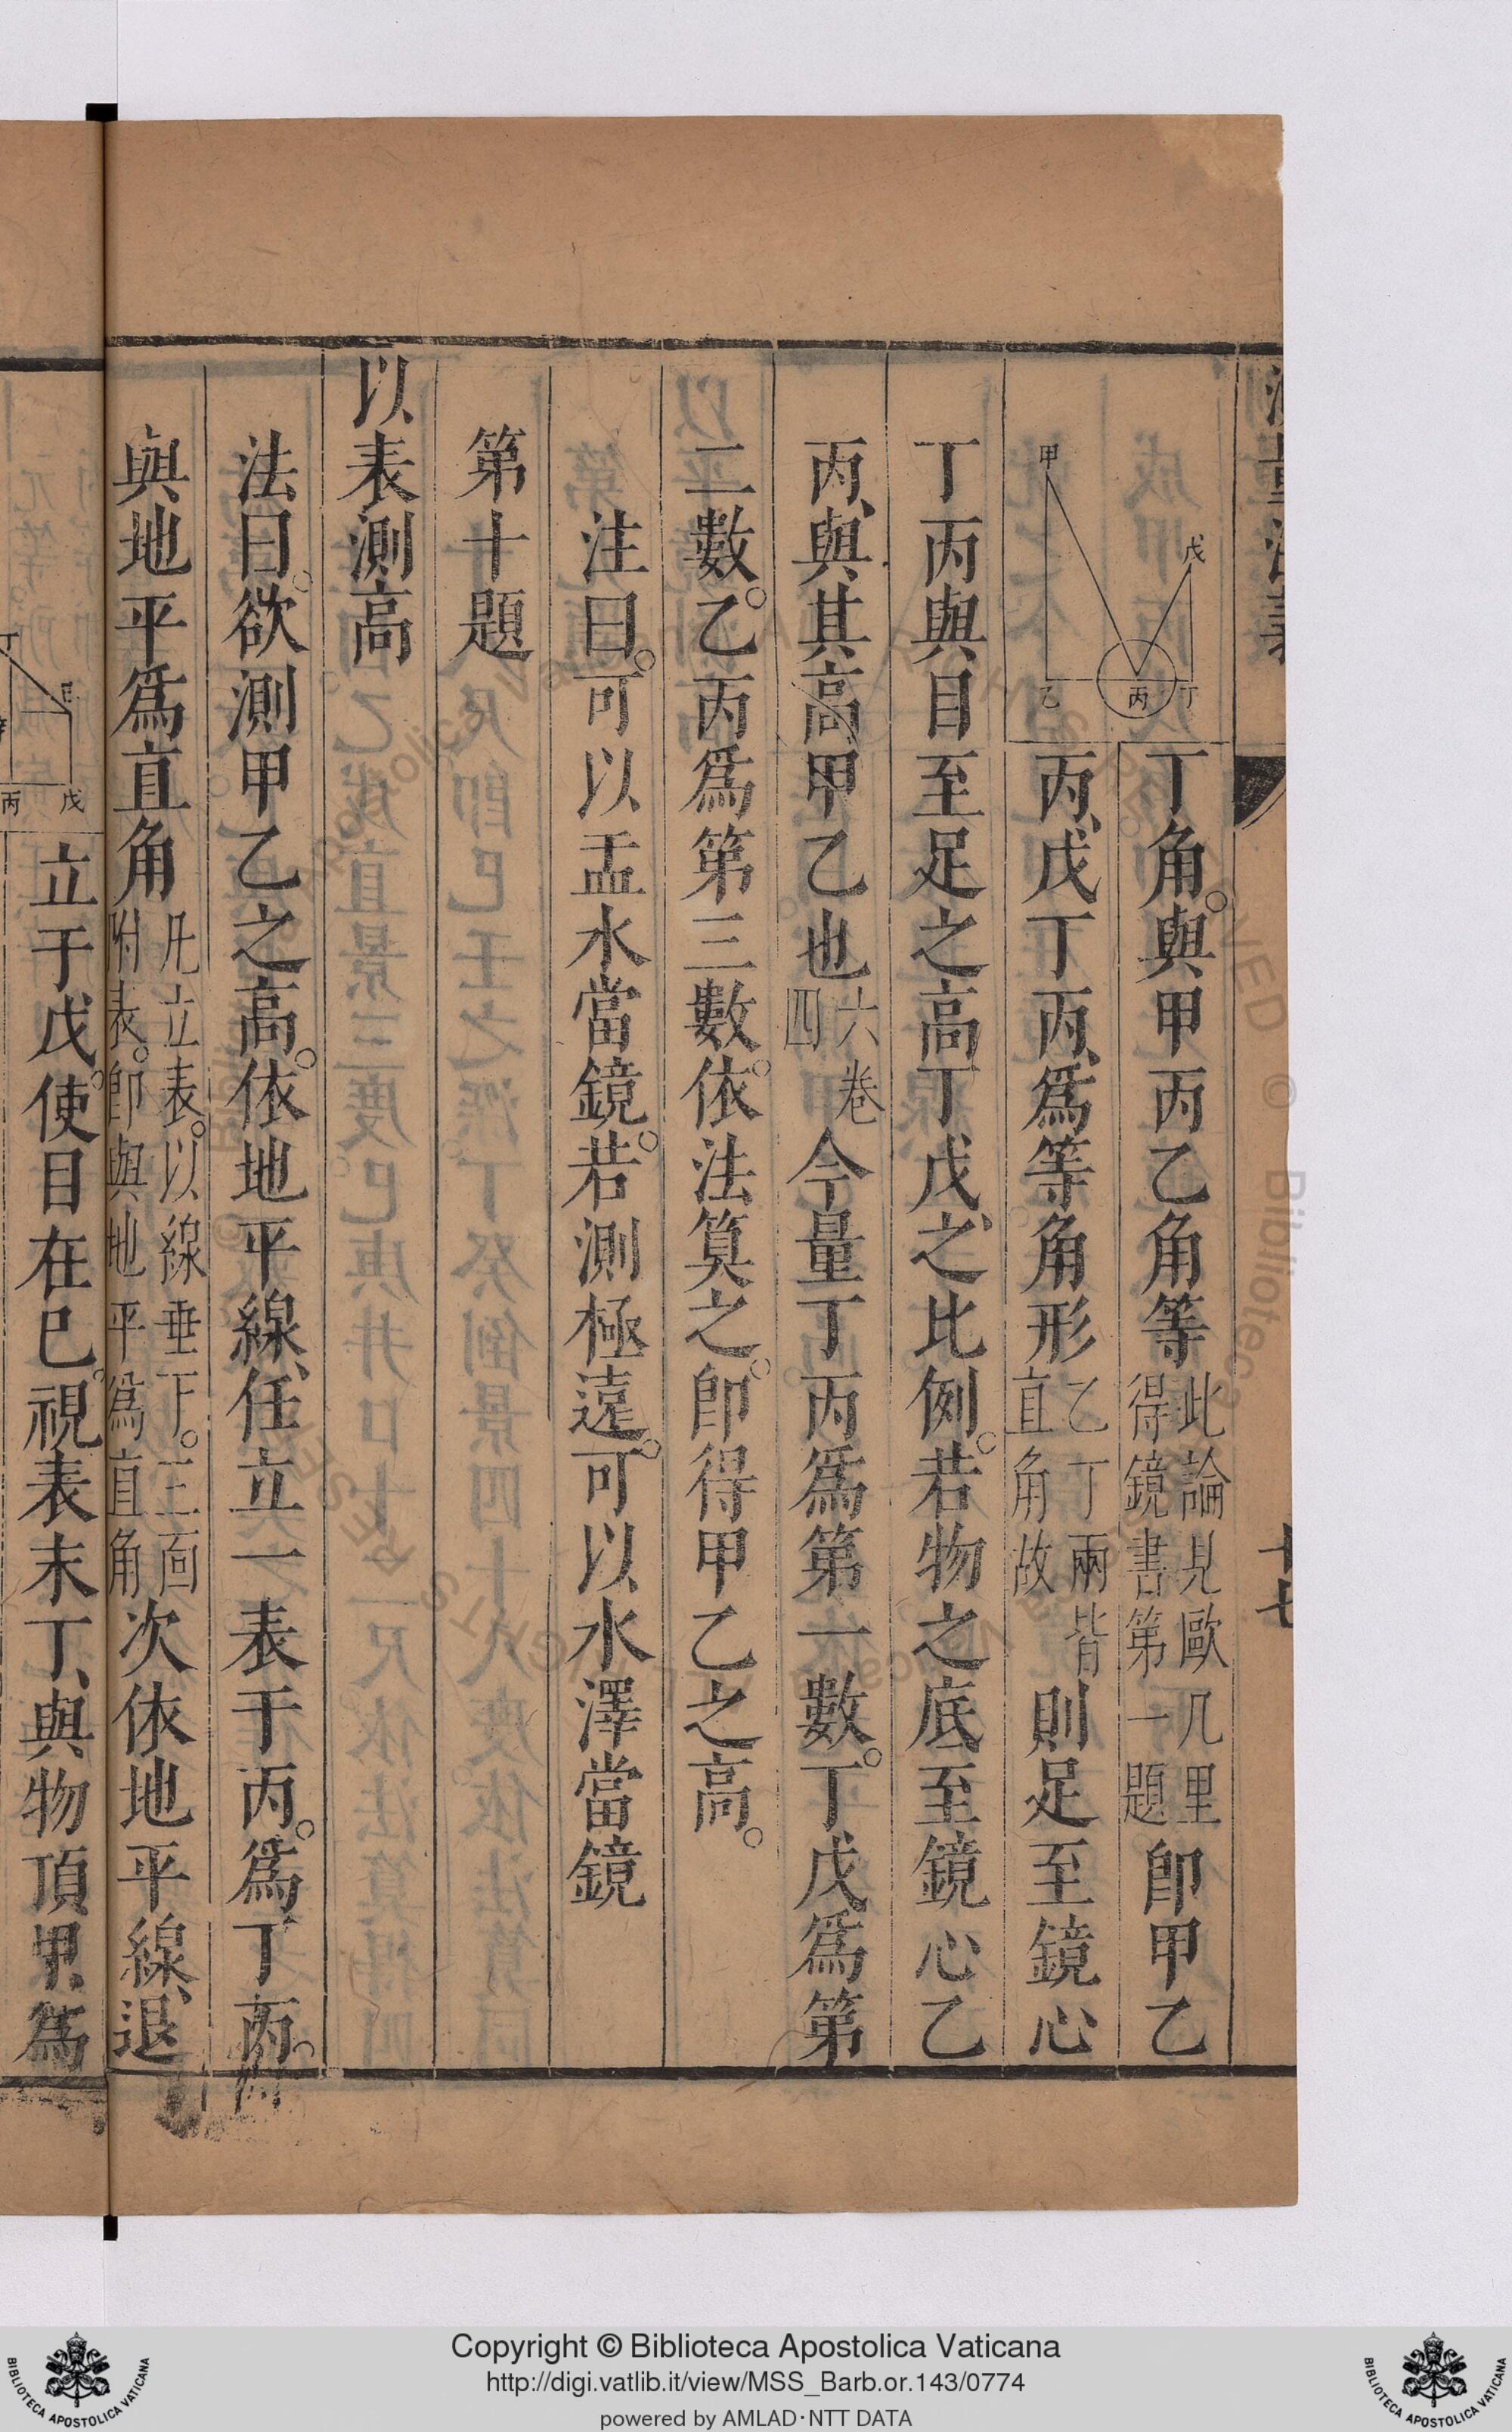 丁角。與甲丙乙角等此論見歐几里得鏡書第一題即甲乙
丙、戊丁丙、爲等角形乙丁兩皆直角故則足至鏡心
丁丙與目至足之高丁戊、之比例。若物之底至鏡心乙
丙、與其高甲乙也六卷四今量丁丙爲第一數。丁戊爲第
二數。乙丙爲第三數。依法筭之。即得甲乙之高。
注曰。可以盂水當鏡。若測極遠。可以水澤當鏡
第十題
以表測高
法曰。欲測甲乙之高。依地平線、任立一表于丙。爲丁丙。
與地平爲直角凡立表。以線垂下。三面附表。即與地平爲直角次依地平線、退
立于戊。使目在己。視表末丁、與物頂甲、爲
甲
乙
丙
丁
戊
丁
己
丙
戊
十七
Copyright © Biblioteca Apostolica Vaticana
http://digi.vatlib.it/view/MSS_Barb.or.143/0774
powered by AMLAD·NTT DATA
BIBLIOTECA APOSTOLICA VATICANA
BIBLIOTECA APOSTOLICA VATICANA